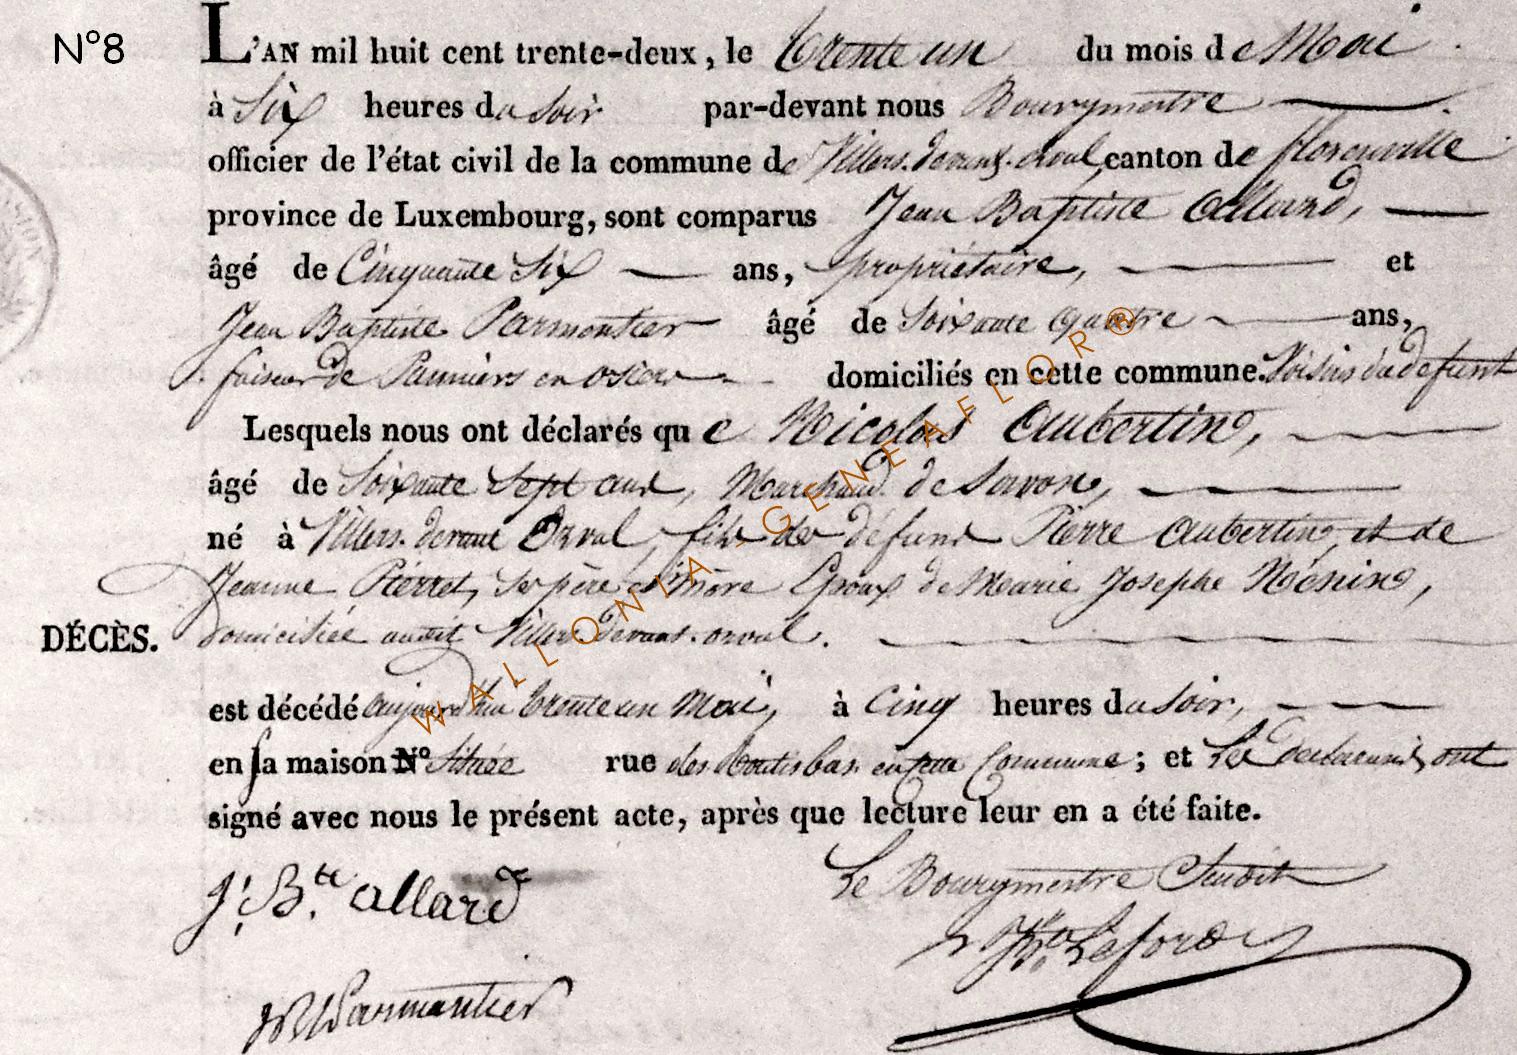 N°8
L'AN mil huit cent trente-deux, le trente un du mois de Mai
à Six heures du Soir par-devant nous Bourgmestre
officier de l'état civil de la commune de Villers-devant-orval, canton de florenville
province de Luxembourg, sont comparus Jean Baptiste Allard,
âgé de Cinquante Six ans, propriétaire, et
Jean Baptiste Parmentier âgé de Soixante quatre ans,
faiseur de Panniers en osier domiciliés en cette commune. Voisins du defunt
Lesquels nous ont déclarés que Nicolas Aubertin,
âgé de Soixante Sept ans, Marchand de Savon,
né à Villers-devant Orval, fils de défunt Pierre Aubertin, et de
Jeanne Pierret, ses père et mère Epoux de Marie Josephe Hénin,
DÉCÈS. domiciliée audit Villers-devant-orval.
est décédé aujourd'hui trente un Mai, à Cinq heures du Soir,
en sa maison N° Située rue des en cette Commune ; et Les declarants, ont
signé avec nous le présent acte, après que lecture leur en a été faite.
J. Bte allard
Le Bourgmestre
Parmentier
WALLONIA - GENEAFLOR®